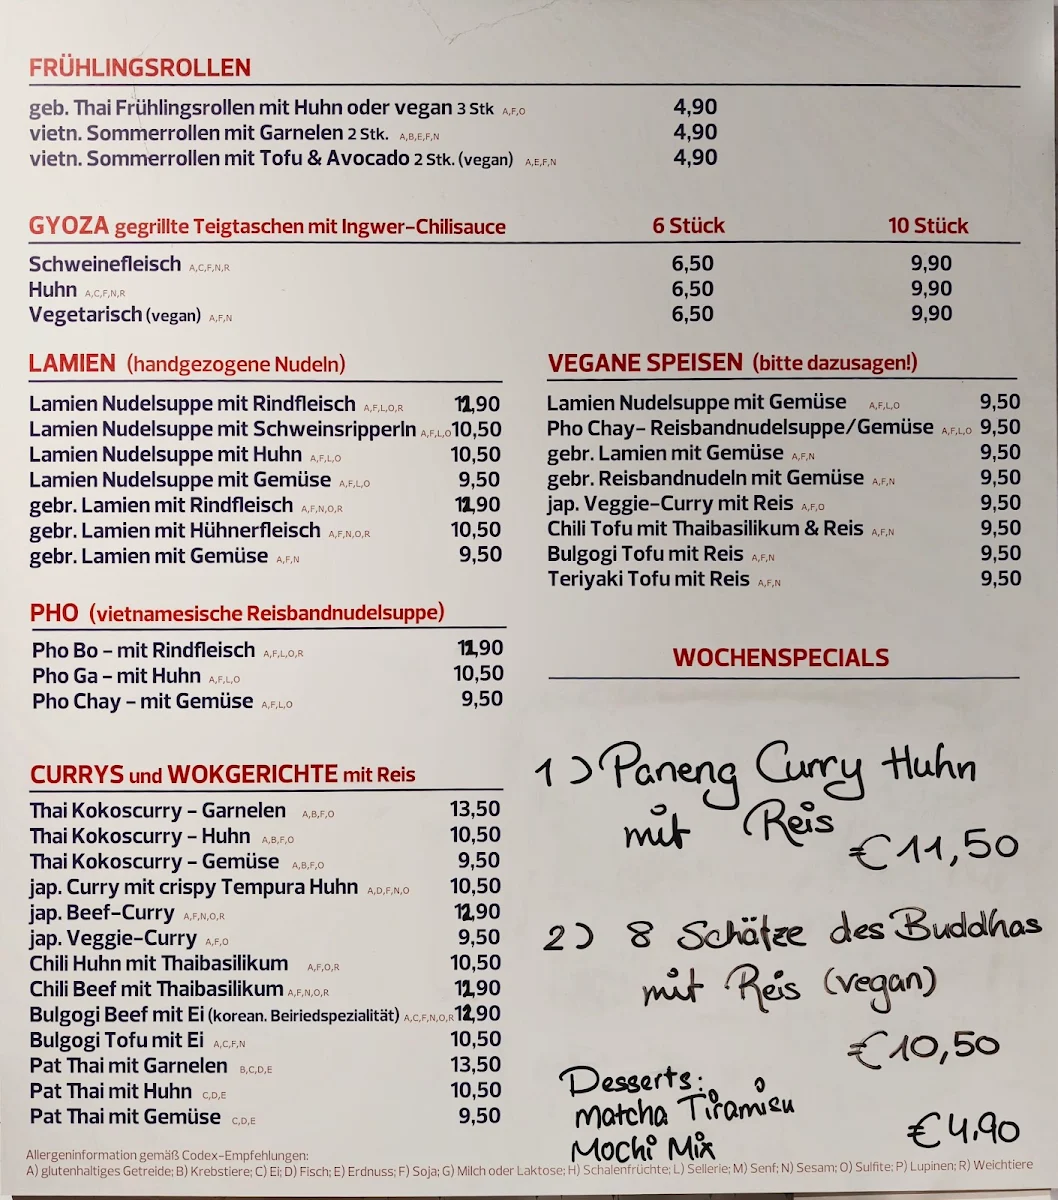 FRÜHLINGSROLLEN
geb. Thai Frühlingsrollen mit Huhn oder vegan 3 Stk A,F,O 4,90
vietn. Sommerrollen mit Garnelen 2 Stk. A,B,E,F,N 4,90
vietn. Sommerrollen mit Tofu & Avocado 2 Stk. (vegan) A,E,F,N 4,90
GYOZA gegrillte Teigtaschen mit Ingwer-Chilisauce 6 Stück 10 Stück
Schweinefleisch A,C,F,N,R 6,50 9,90
Huhn A,C,F,N,R 6,50 9,90
Vegetarisch (vegan) A,F,N 6,50 9,90
LAMIEN (handgezogene Nudeln)
Lamien Nudelsuppe mit Rindfleisch A,F,L,O,R 12,90
Lamien Nudelsuppe mit Schweinsripperln A,F,L,O 10,50
Lamien Nudelsuppe mit Huhn A,F,L,O 10,50
Lamien Nudelsuppe mit Gemüse A,F,L,O 9,50
gebr. Lamien mit Rindfleisch A,F,N,O,R 12,90
gebr. Lamien mit Hühnerfleisch A,F,N,O,R 10,50
gebr. Lamien mit Gemüse A,F,N 9,50
PHO (vietnamesische Reisbandnudelsuppe)
Pho Bo - mit Rindfleisch A,F,L,O,R 12,90
Pho Ga - mit Huhn A,F,L,O 10,50
Pho Chay - mit Gemüse A,F,L,O 9,50
CURRYS und WOKGERICHTE mit Reis
Thai Kokoscurry - Garnelen A,B,F,O 13,50
Thai Kokoscurry - Huhn A,B,F,O 10,50
Thai Kokoscurry - Gemüse A,B,F,O 9,50
jap. Curry mit crispy Tempura Huhn A,D,F,N,O 10,50
jap. Beef-Curry A,F,N,O,R 12,90
jap. Veggie-Curry A,F,O 9,50
Chili Huhn mit Thaibasilikum A,F,O,R 10,50
Chili Beef mit Thaibasilikum A,F,N,O,R 12,90
Bulgogi Beef mit Ei (korean. Beiriedspezialität) A,C,F,N,O,R 12,90
Bulgogi Tofu mit Ei A,C,F,N 10,50
Pat Thai mit Garnelen B,C,D,E 13,50
Pat Thai mit Huhn C,D,E 10,50
Pat Thai mit Gemüse C,D,E 9,50
VEGANE SPEISEN (bitte dazusagen!)
Lamien Nudelsuppe mit Gemüse A,F,L,O 9,50
Pho Chay- Reisbandnudelsuppe/Gemüse A,F,L,O 9,50
gebr. Lamien mit Gemüse A,F,N 9,50
gebr. Reisbandnudeln mit Gemüse A,F,N 9,50
jap. Veggie-Curry mit Reis A,F,O 9,50
Chili Tofu mit Thaibasilikum & Reis A,F,N 9,50
Bulgogi Tofu mit Reis A,F,N 9,50
Teriyaki Tofu mit Reis A,F,N 9,50
WOCHENSPECIALS
1) Paneng Curry Huhn
mit Reis
€ 11,50
2) 8 Schätze des Buddhas
mit Reis (vegan)
€ 10,50
Desserts:
Matcha Tiramisu
Mochi Mix € 4,90
Allergeninformation gemäß Codex-Empfehlungen:
A) glutenhaltiges Getreide; B) Krebstiere; C) Ei; D) Fisch; E) Erdnuss; F) Soja; G) Milch oder Laktose; H) Schalenfrüchte; L) Sellerie; M) Senf; N) Sesam; O) Sulfite; P) Lupinen; R) Weichtiere